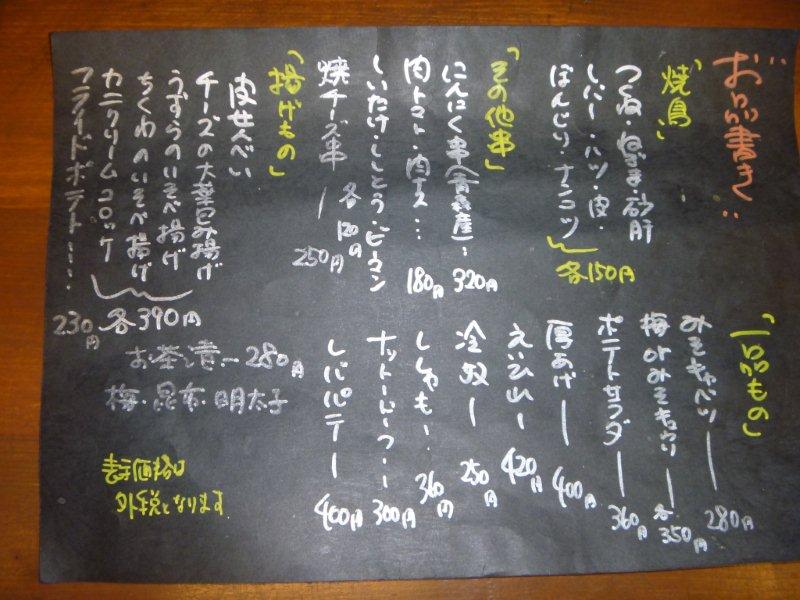 お品書き
「焼鳥」
つくね・ねぎま・砂肝
レバー・ハツ・皮・
ぼんじり・ナンコツ
各150円
「その他串」
にんにく串(青森産)‥320円
肉トマト・肉ナス…180円
しいたけ・ししとう・ピーマン
各120円
焼チーズ串 ー 250円
「揚げもの」
皮せんべい
チーズの大葉包み揚げ
うずらのいそべ揚げ
ちくわのいそべ揚げ
カニクリームコロッケ
各390円
フライドポテト……230円
「一品もの」
みそキャベツ ー 280円
梅orみそキュウリ ー 各350円
ポテトサラダ ー 360円
厚あげ ー 400円
えいひレ ー 420円
冷奴 ー 250円
ししゃも‥360円
ナットーレーフ…300円
レバパテ ー 400円
お茶漬‥280円
梅・昆布・明太子
表示価格は
外税となります